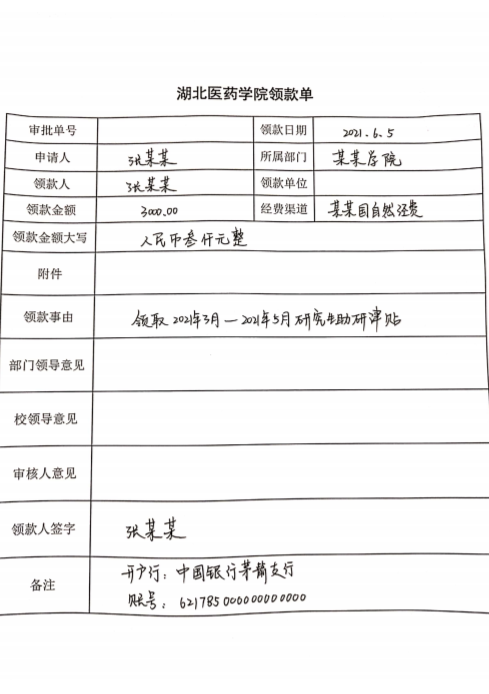 湖北医药学院领款单
审批单号 领款日期 2021.6.5
申请人 张某某 所属部门 某某学院
领款人 张某某 领款单位
领款金额 3000.00 经费渠道 某某国自然经费
领款金额大写 人民币叁仟元整
附件
领款事由 领取2021年3月—2021年5月研究生助研津贴
部门领导意见
校领导意见
审核人意见
领款人签字 张某某
备注 开户行：中国银行茅箭支行
账号：621785000000000000